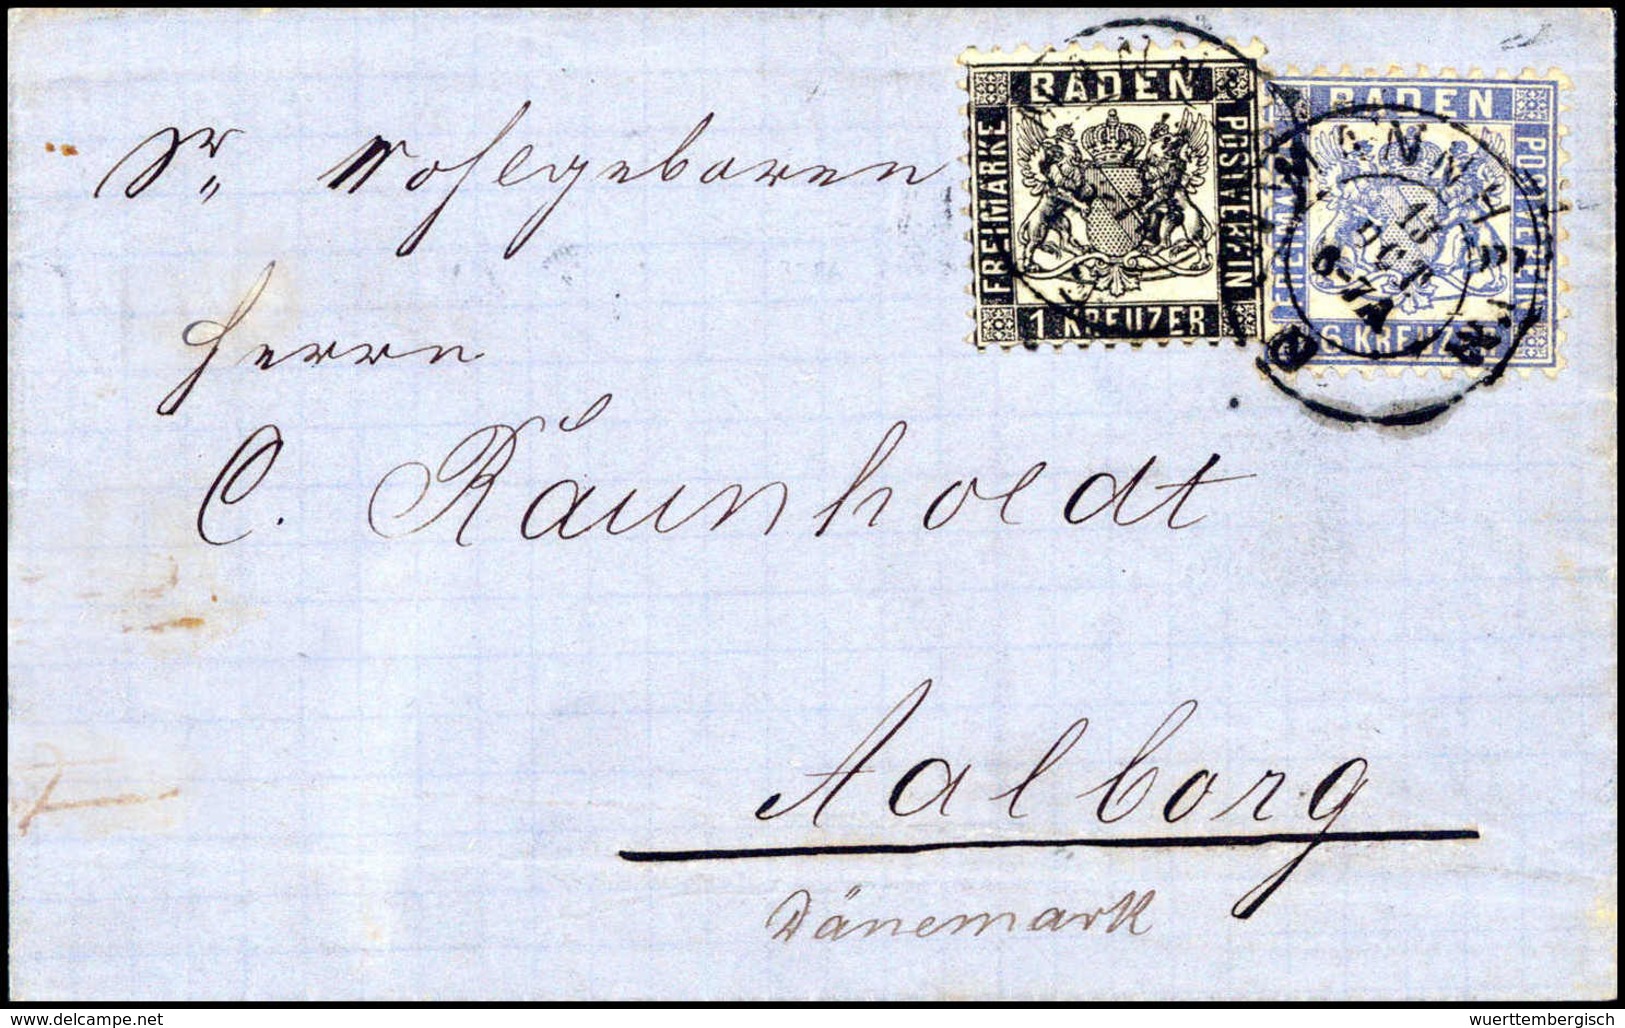 BADEN
FREIMARKE
POSTVEREIN
1 KREUZER
BADEN
FREIMARKE
POSTVEREIN
6 KREUZER
MANNHEIM
13
OCT
6-7A
Sr. Wohlgeboren
Herrn
C. Raunholdt
Aalborg
Dänemark
© delcampe.net
wuerttembergisch